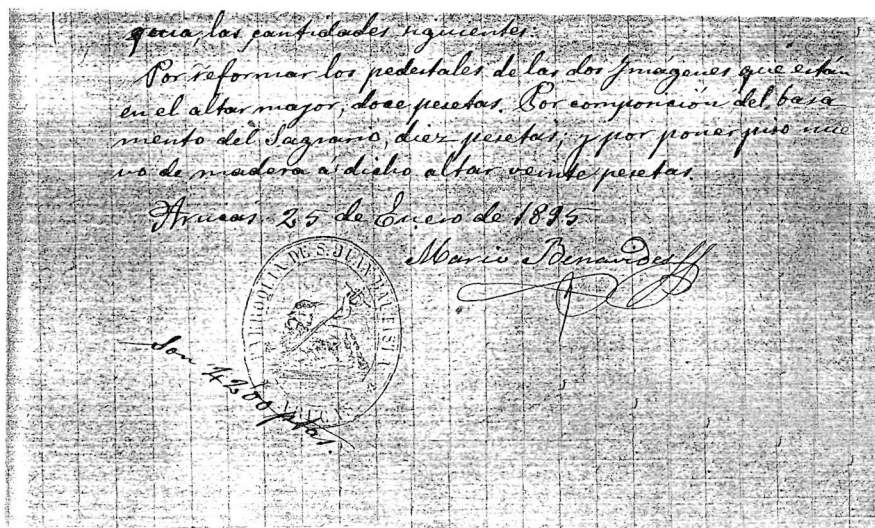 quia, las cantidades siguientes:
Por reformar los pedestales de las dos Imagenes que están
en el altar mayor, doce pesetas. Por composición del basa
mento del Sagrario, diez pesetas; y por poner piso nue
vo de madera á dicho altar veinte pesetas.
Arucas 25 de Enero de 1895
Mario Benavides
PARROQUIA DE S. JUAN BAUTISTA
ARUCAS
Son 42'00 ptas.